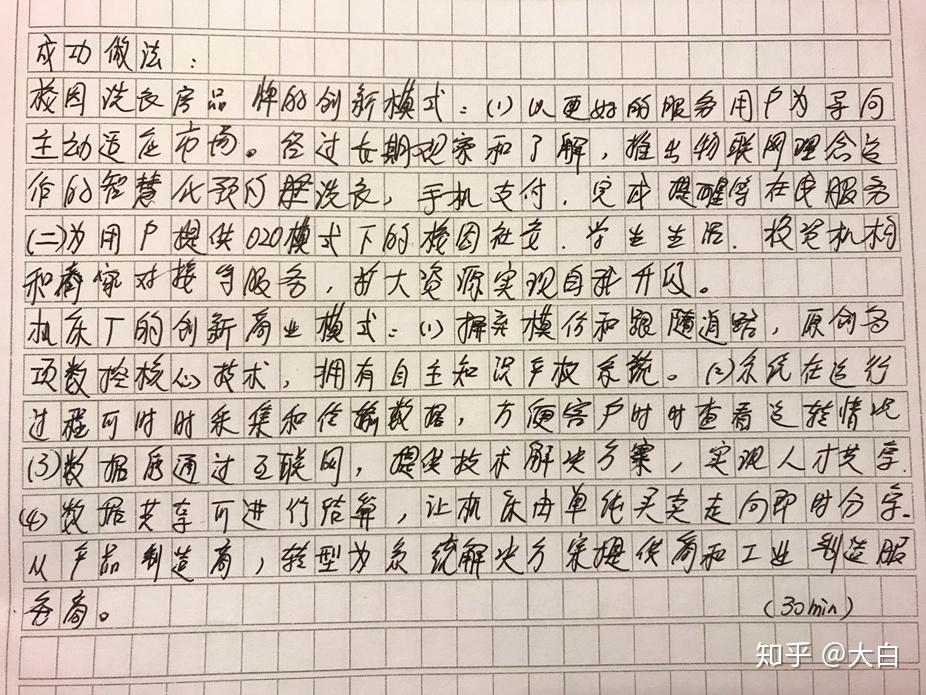 成功做法:
校园洗衣房品牌的创新模式:(1)以更好的服务用户为导向
主动适应市场。经过长期观察和了解,推出物联网理念运
作的智慧化预约洗衣,手机支付,完毕提醒等在线服务
(二)为用户提供O2O模式下的校园社交.学生生活.投资机构
和商家对接等服务,扩大资源实现自我升级。
机床厂的创新商业模式:(1)摒弃模仿和跟随道路,原创多
项数控核心技术,拥有自主知识产权系统。(2)系统在运行
过程可时时采集和传输数据,方便客户时时查看运转情况
(3)数据能通过互联网,提供技术解决方案,实现人才共享.
(4)数据共享可进行结算,让机床由单纯买卖走向即时分享.
从产品制造商,转型为系统解决方案提供商和工业制造服
务商。
(30min)
知乎 @大白